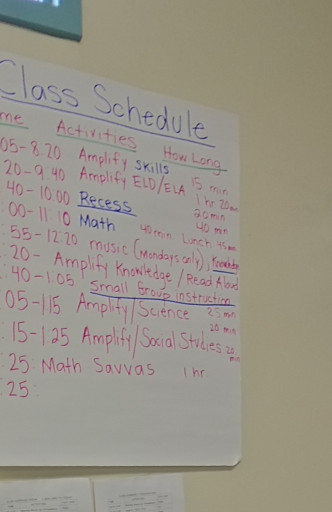 Class Schedule
me Activities How Long
05-8 20 Amplify Skills 15 min
20-9 40 Amplify ELD/ELA 1 hr 20 min
40-10 00 Recess 20 min
00-11 10 Math 40 min
40 min Lunch 45 min
55-12 20 music (Mondays only), Knowledge
20- Amplify Knowledge / Read Aloud
40-1:05 Small Group instruction
05-1 15 Amplify/Science 25 min
10 min
15-1 25 Amplify/Social Studies 20 min
25 Math Savvas 1 hr
25